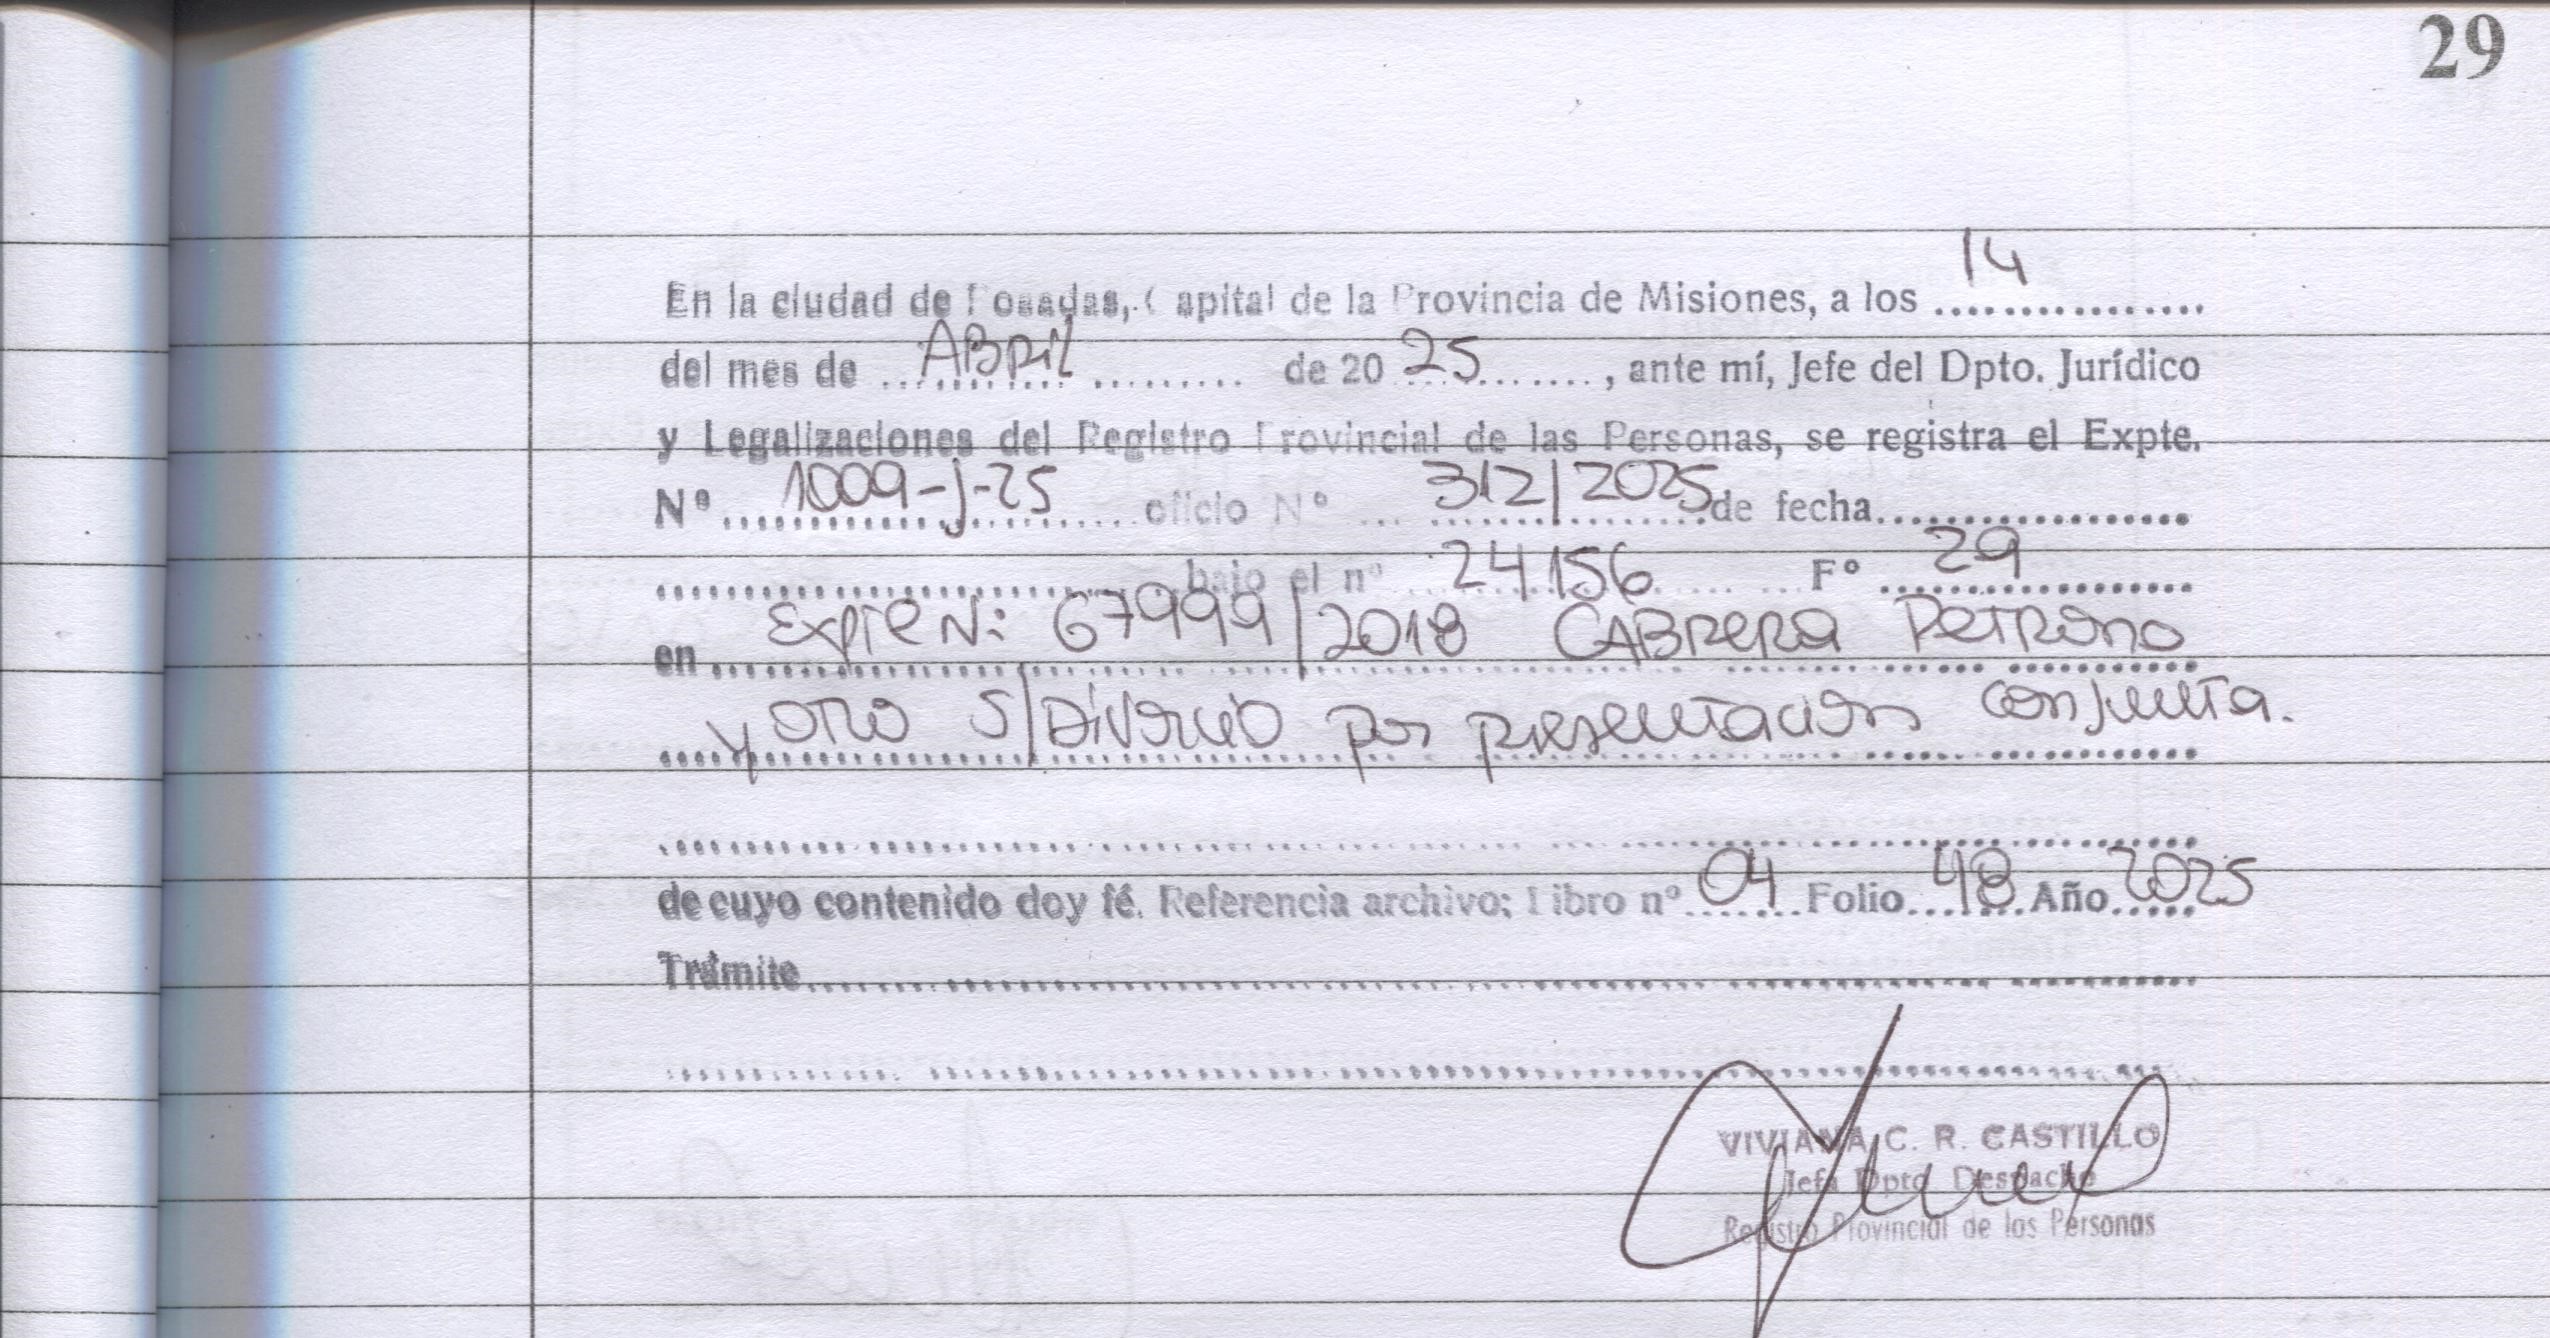 29
En la ciudad de Posadas, Capital de la Provincia de Misiones, a los 14
del mes de ABRIL de 20 25, ante mí, Jefe del Dpto. Jurídico
y Legalizaciones del Registro Provincial de las Personas, se registra el Expte.
Nº 1009-J-25 oficio Nº 312/2025 de fecha
bajo el nº 24156 Fº 29
en Expte N: 67999/2018 CABRERA PETRONO
y OTRO S/DIVORCIO por presentacion conjunta.
de cuyo contenido doy fé. Referencia archivo; Libro nº 04 Folio 48 Año 2025
Trámite
VIVIANA C. R. CASTILLO
Jefa Dpto Despacho
Registro Provincial de las Personas